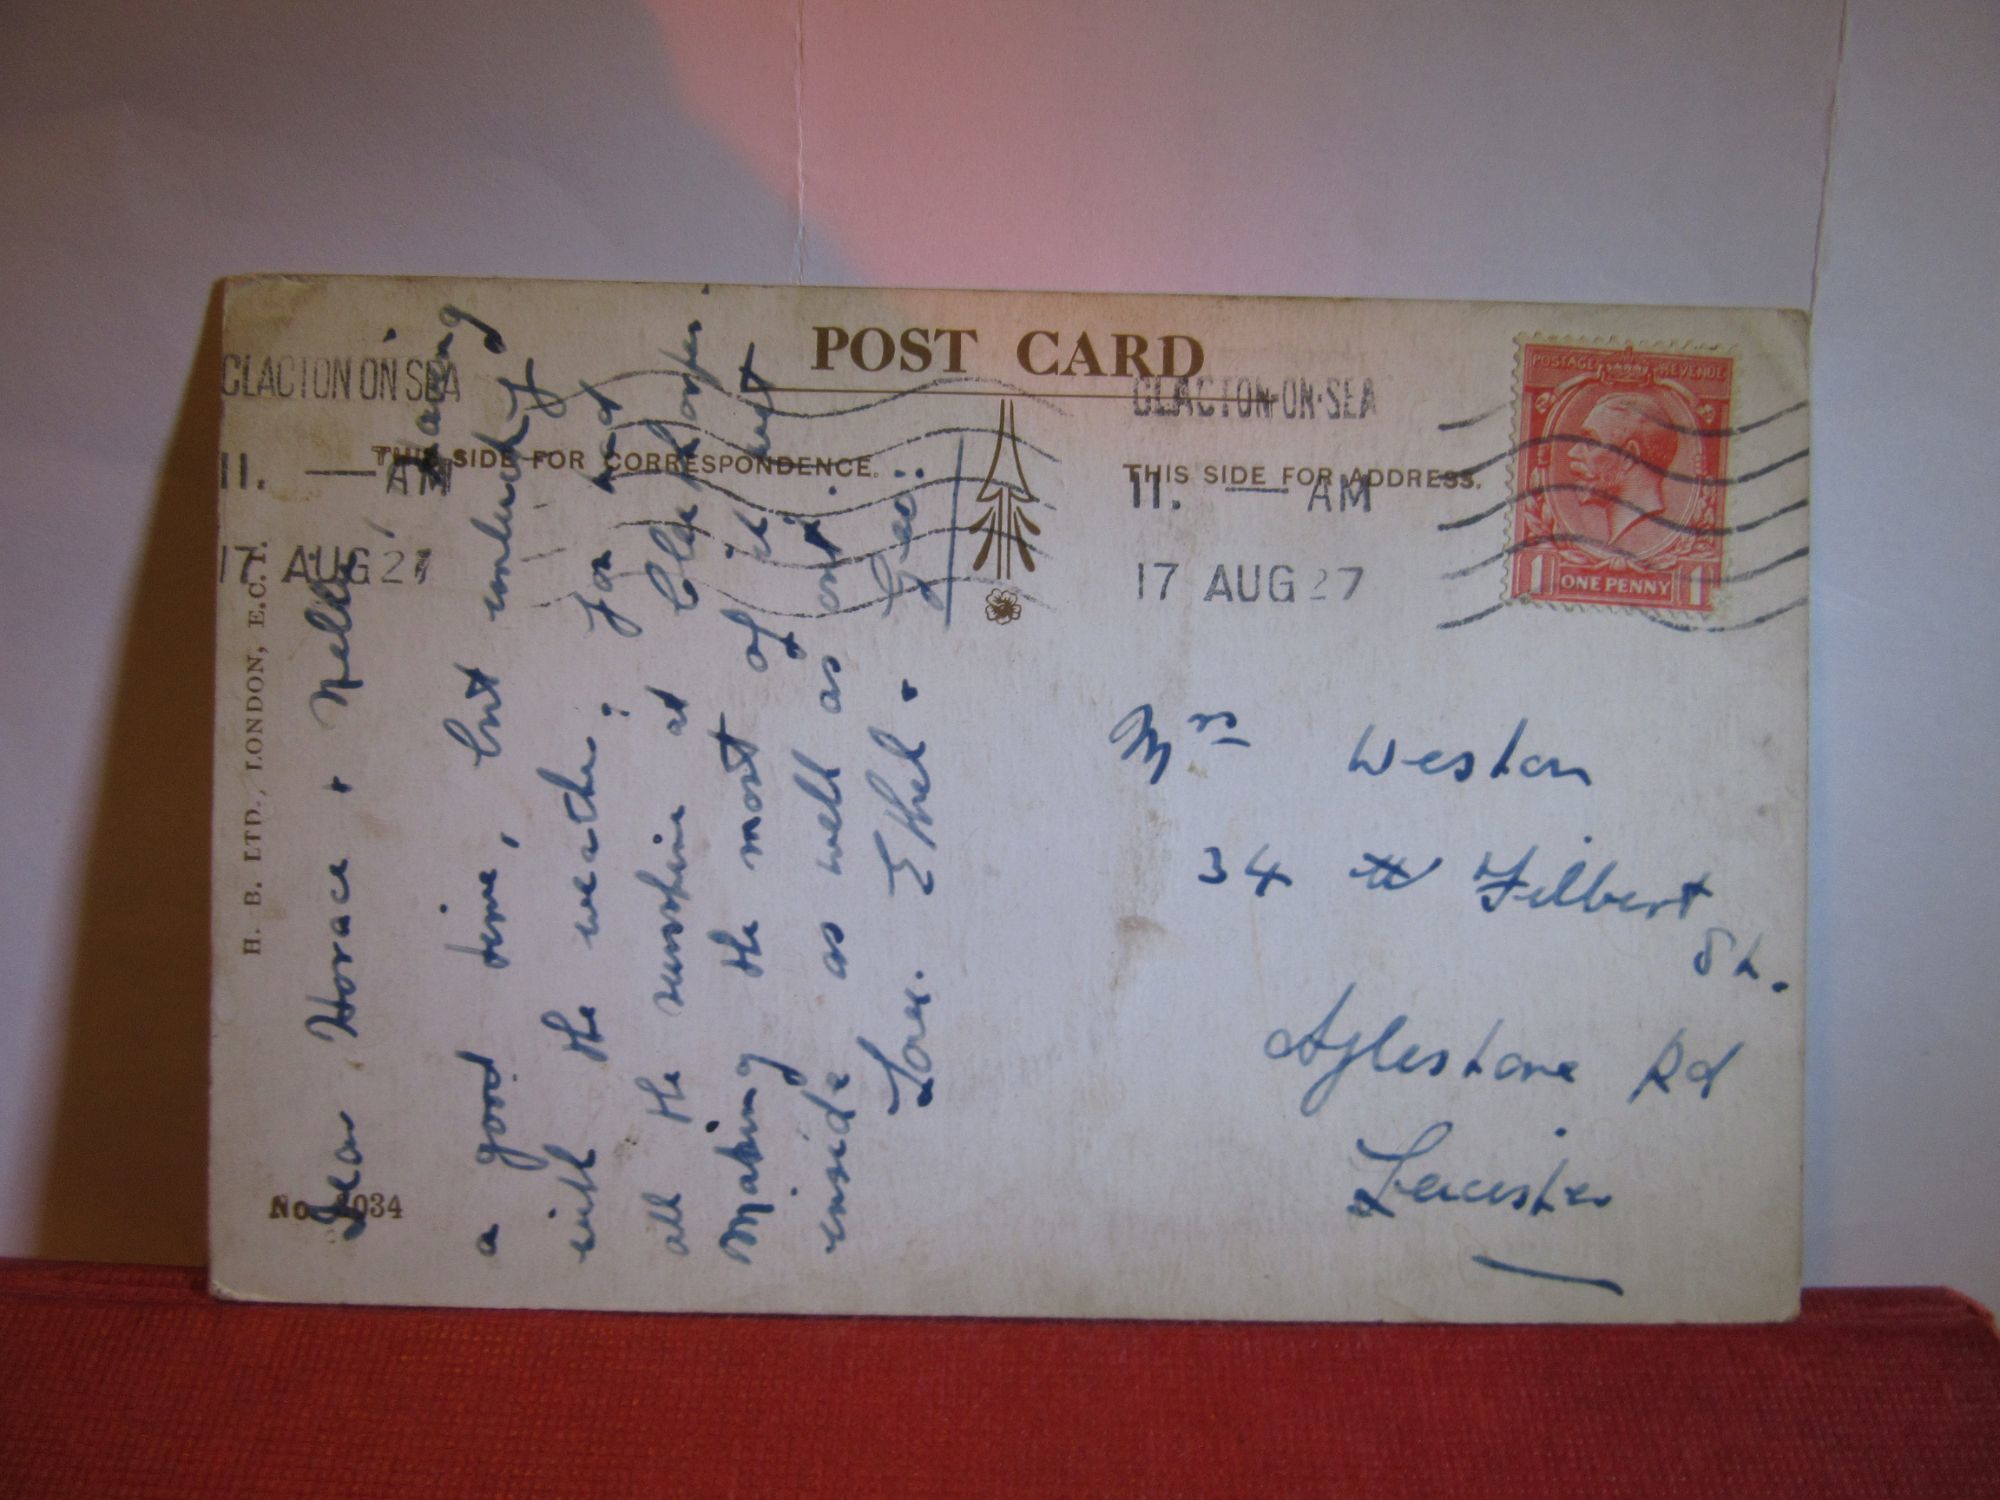 POST CARD
CLACTON ON SEA
11. — AM
17 AUG 27
THIS SIDE FOR CORRESPONDENCE.
CLACTON-ON-SEA
11. — AM
17 AUG 27
THIS SIDE FOR ADDRESS.
POSTAGE REVENUE
1 ONE PENNY 1
H. B. LTD., LONDON, E.C.1.
Dear Horace + Nellie, Having
a good time, but unlucky
with the weather: You had
all the sunshine at
Making the most of it wet
inside as well as out.
Love. Ethel. Geo:
Mrs Weston
34 Filbert
St.
Aylestone Rd
Leicester